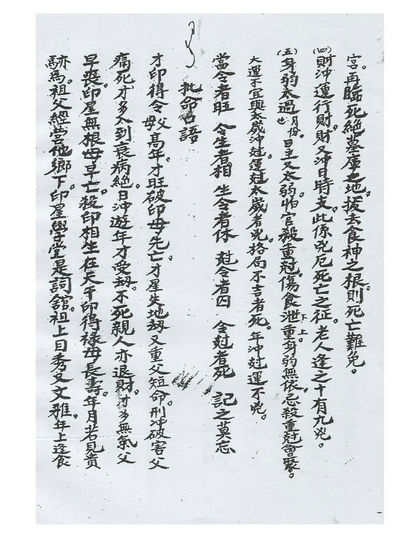 宫。再臨死絕墓庫之地。拔去食神之根。則死亡難免。
(四)財沖運行財。財又沖日時支。此係兇厄死亡之征。老人逢之十有九兇。
(五)身弱太過也。月份日主又太弱。怕官殺重冠。傷食泄重。身弱無依。忌殺重冠會聚。
大運不宜與太歲沖冠。運冠太歲者兇。格局不吉者死。年沖冠運不兇。
當令者旺 令生者相 生令者休 冠令者囚 令冠者死 記之莫忘
批命口語
才印得令。父母高年。才旺破印母先亡。才星失地劫又重父短命。刑沖破害父
痛死。才多入到衰病絕。日沖遊年才受劫。不死親人亦退財。才多無氣父
早喪。印星無根母早亡。殺印相生在天干。印得祿母長壽。年月若見貴
跡為祖父經営他鄉下。印星學堂是詞舘。祖上日秀又文雅。年上逢食